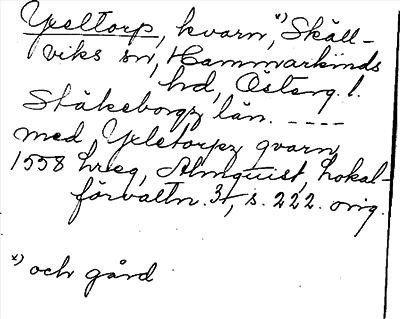 Yxeltorp, kvarn,*) Skäll-
viks sn, Hammarkinds
hrd, Österg. l.
Stäkeborgz län. ----
med Yxletorpz qvarn
1558 hreg, Almquist, Lokal-
förvaltn. 34, s. 222. orig.
*) och gård